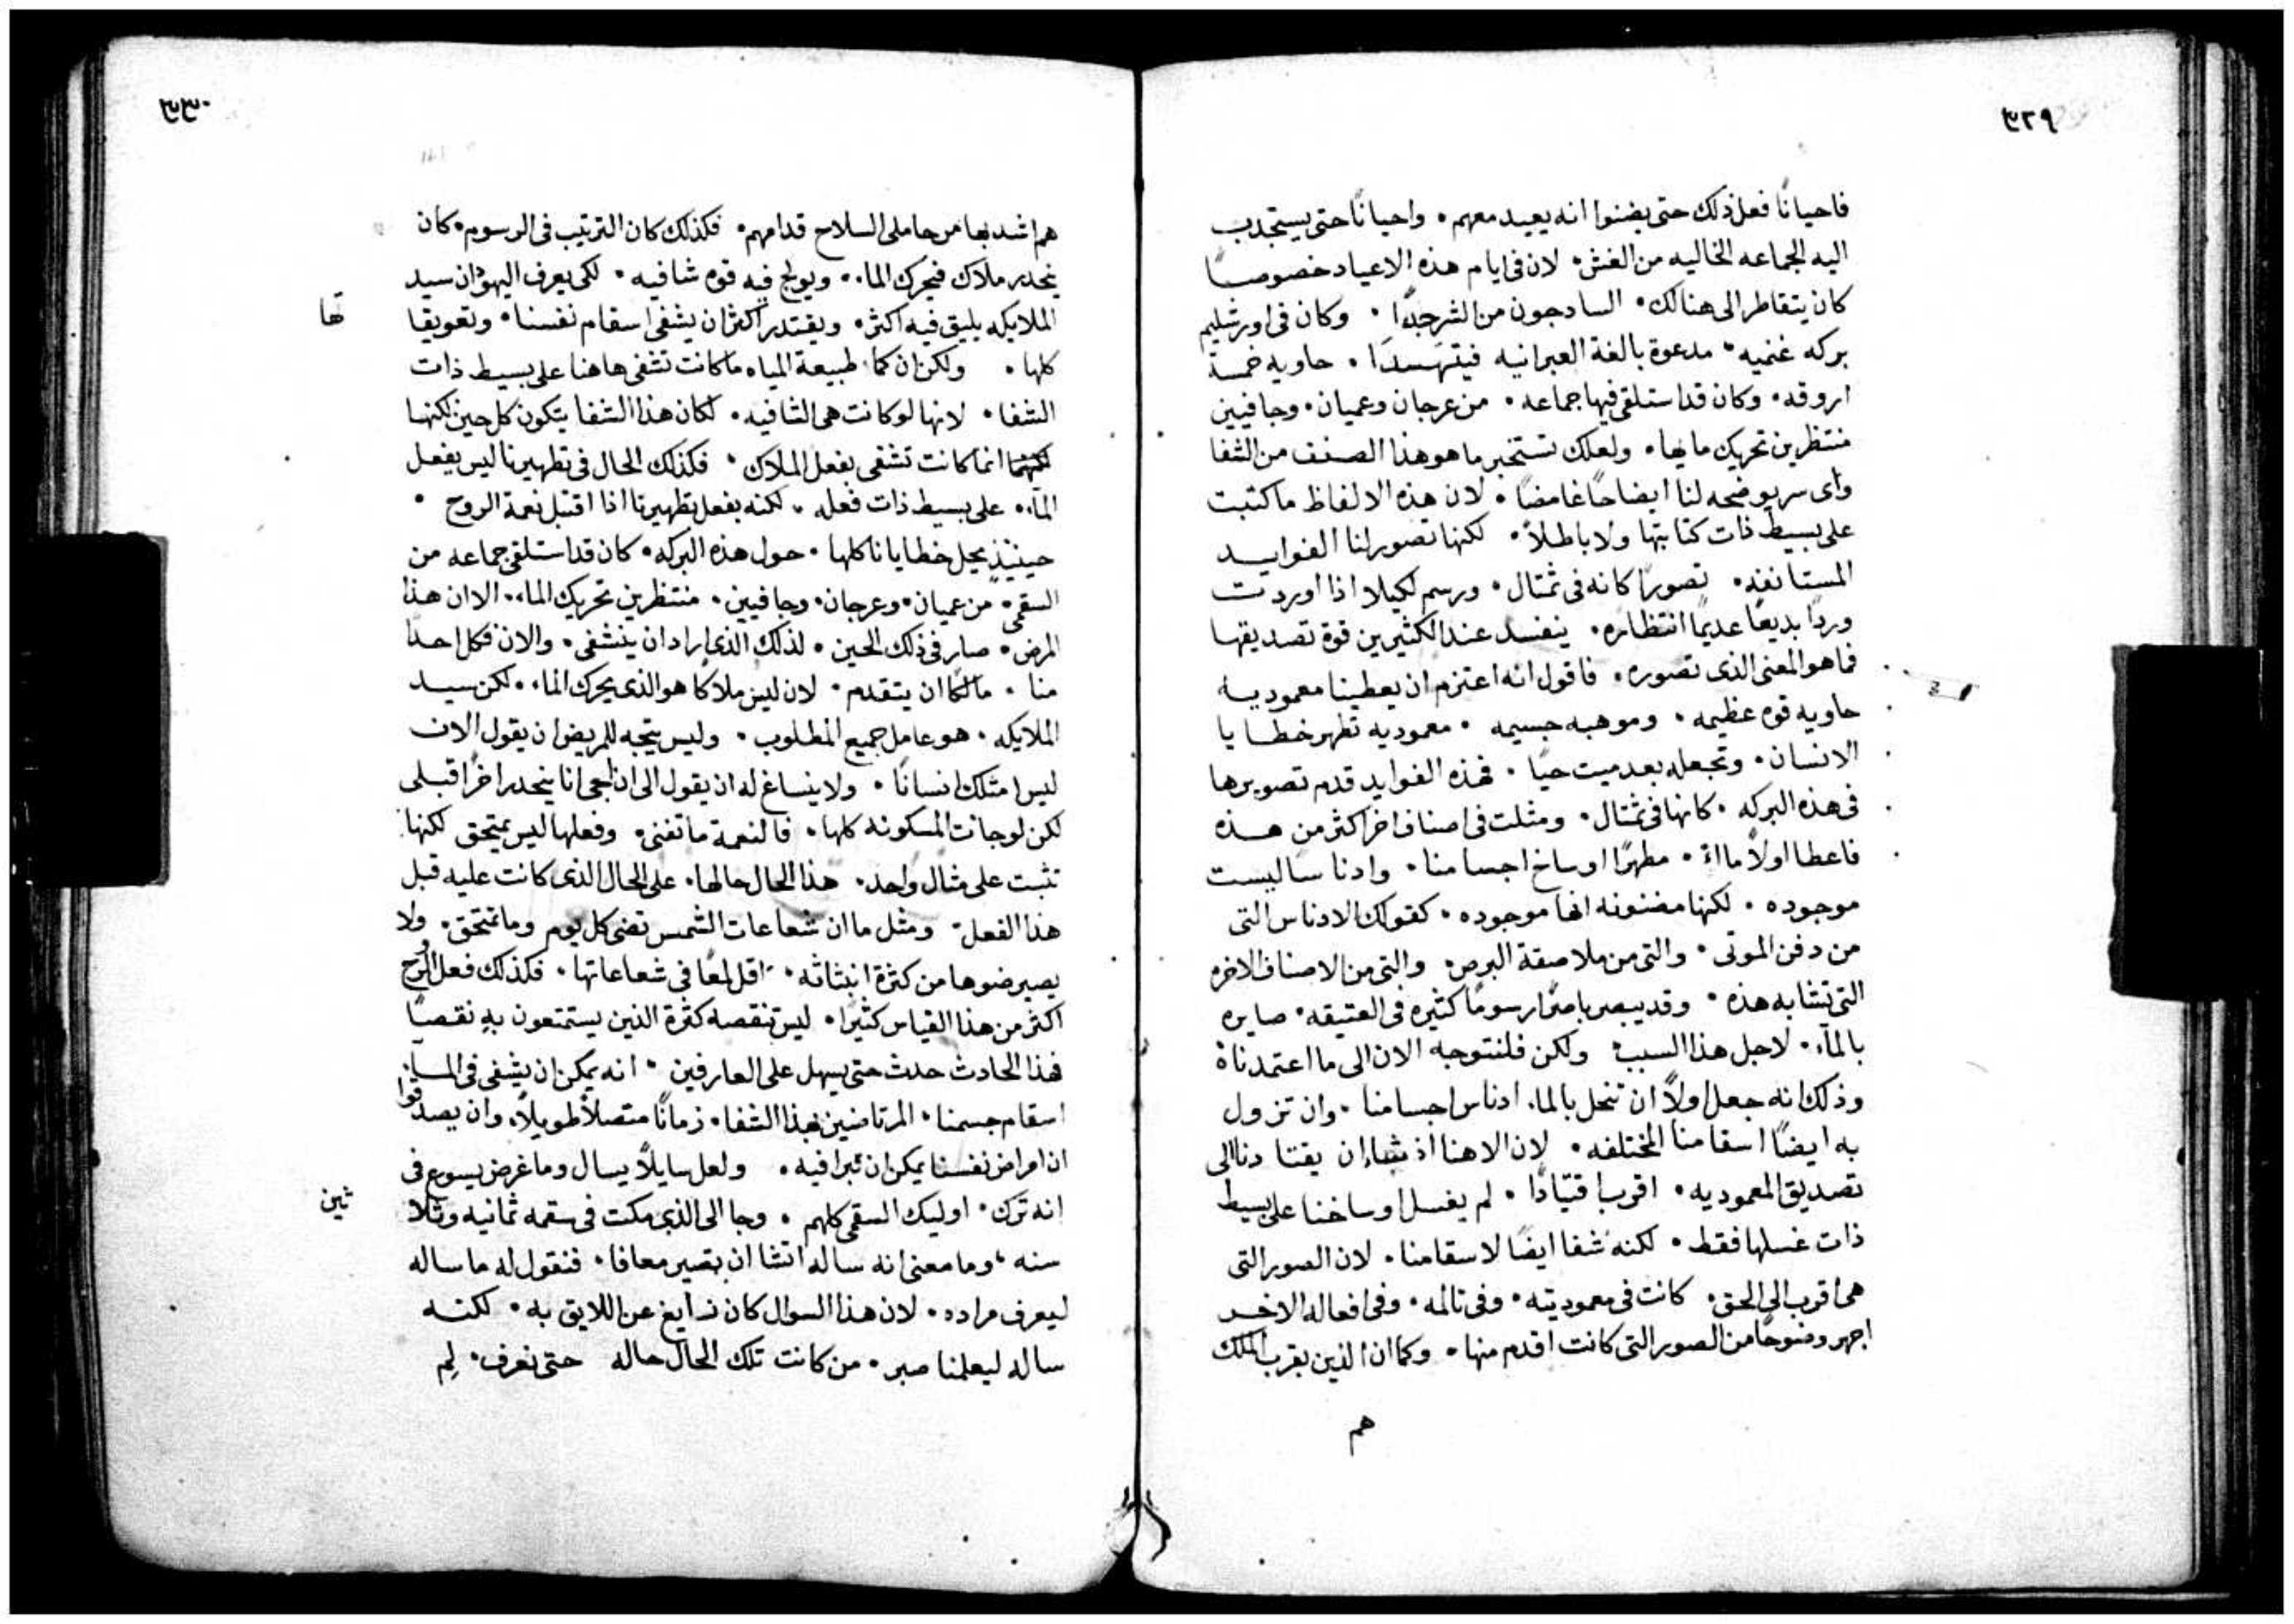 ٣٢٩
فاحيانًا فعل ذلك حتى يضنوا انه يعيد معهم٠ واحيانًا حتى يستجدب
اليه الجماعه الخاليه من الغش٠ لان فى ايام هذه الاعياد خصوصًا
كان يتقاطر الى هنالك٠ السادجون من الشر جدًا ٠ وكان فى اورشليم
بركه غنميه٠ مدعوة بالغة العبرانيه فيتهسدَا ٠ حاويه خمسة
اروقه٠ وكان قد استلقى فيها جماعه ٠ من عرجان وعميان٠ وجافيين
منتظرين تحريك مايها٠ ولعلك تستخبر ما هو هذا الصنف من الشفا
واى سر يوضحه لنا ايضاحًا غامضًا ٠ لان هذه الالفاظ ما كتبت
على بسيط ذات كتابتها ولا باطلاً٠ لكنها تصور لنا الفوايد
المستانفه٠ تصورًا كانه فى تمثال٠ ورسم لكيلا اذا اوردت
وردًا بديعًا عديمًا انتظاره٠ ينفسد عند الكثيرين قوة تصديقها
فما هو المعنى الذى تصوره٠ فاقول انه اعتزم ان يعطينا معموديه
حاويه قوه عظيمه٠ وموهبه جسيمه ٠ معموديه تطهر خطايا
الانسان٠ وتجعله بعد ميت حيًا ٠ فهذه الفوايد قدم تصويرها
فى هذه البركه ٠ كانها فى تمثال٠ ومثلت فى اصناف اخر اكثر من هذه
فاعطا اولاً ماءً ٠ مطهرًا اوساخ اجسامنا٠ وادناسًا ليست
موجوده ٠ لكنها مضنونه انها موجوده ٠ كقولك الادناس التى
من دفن الموتى٠ والتى من ملاصقة البرص٠ والتى من الاصناف الاخره
التى تشابه هذه ٠ وقد يبصر باصرًا رسومًا كثيره فى العتيقه٠ صايره
بالمآء٠ لاجل هذا السبب٠ ولكن فلنتوجه الان الى ما اعتمدناه
وذلك انه جعل اولاً ان تنحل بالماء ادناس اجسامنا ٠ وان تزول
به ايضًا اسقامنا المختلفه٠ لان الاهنا اذ شاء ان يقتادنا الى
تصديق المعموديه٠ اقرب اقتيادًا ٠ لم يغسل اوساخنا على بسيط
ذات غسلها فقط٠ لكنه شفا ايضًا لاسقامنا٠ لان الصور التى
هى اقرب الى الحق٠ كانت فى معموديته٠ وفى تالمه٠ وفى افعاله الاخر
اجهر وضوحًا من الصور التى كانت اقدم منها٠ وكما ان الذين بقرب الملك
هم
٣٣٠
هم اشد بها من حاملى السلاح قدامهم٠ فكذلك كان الترتيب فى الرسوم٠ كان
ينحدر ملاك فيحرك الماء٠ ويولج فيه قوه شافيه٠ لكى يعرف اليهود ان سيد
الملايكه يليق فيه اكثر٠ ويقتدر اكثر ان يشفى اسقام نفسنا٠ وتعويقا
تها
كلها ٠ ولكن ان كما طبيعة المياه ما كانت تشفى هاهنا على بسيط ذات
الشفا ٠ لانها لو كانت هى الشافيه٠ لكان هذا الشفا يتكون كل حين لكنها
انما كانت تشفى بفعل الملاك٠ فكذلك الحال فى تطهيرنا ليس يفعل
المآء٠ على بسيط ذات فعله ٠ لكنه يفعل تطهيرنا اذا اقتبل نعمة الروح ٠
حينيذٍ يحل خطايانا كلها ٠ حول هذه البركه٠ كان قد استلقى جماعه من
السقمى٠ من عميان٠ وعرجان٠ وجافيين٠ منتظرين تحريك الماء٠ الا ان هذا
المرض٠ صار فى ذلك الحين٠ لذلك الذى اراد ان ينشفى٠ والان فكل احدًا
منا ٠ مالكًا ان يتقدم٠ لان ليس ملاكًا هو الذى يحرك الماء٠ لكن سيد
الملايكه ٠ هو عامل جميع المطلوب٠ وليس يتجه للمريض ان يقول الان
ليس امتلك انسانًا ٠ ولا ينساغ له ان يقول الى ان اجى انا ينحدر اخرًا قبلى
لكن لو جات المسكونه كلها٠ فالنعمة ما تفنى٠ وفعلها ليس يمتحق لكنها
تثبت على مثال واحد٠ هذا الحال حالها٠ على الحال الذى كانت عليه قبل
هذا الفعل٠ ومثل ما ان شعاعات الشمس تضى كل يوم وما تمتحق٠ ولا
يصير ضوها من كثرة انبثاثه٠ اقل لمعًا فى شعاعاتها٠ فكذلك فعل الروح
اكثر من هذا القياس كثيرًا٠ ليس تنقصه كثرة الذين يستمتعون به نقصًا
فهذا الحادث حدث حتى يسهل على العارفين ٠ انه يمكن ان يشفى فى المآء
اسقام جسمنا٠ المرتاضين بهذا الشفا٠ زمانًا متصلاً طويلاً٠ وان يصدقوا
ان امراض نفسنا يمكن ان تبرا فيه٠ ولعل سايلاً يسال وما غرض يسوع فى
انه ترك٠ اوليك السقمى كلهم ٠ وجا الى الذى مكث فى سقمه ثمانيه وثلا
ثين
سنه، وما معنى انه ساله اتشا ان تصير معافا٠ فنقول له ما ساله
ليعرف مراده٠ لان هذا السوال كان زايغ عن اللايق به٠ لكنه
ساله ليعلمنا صبر٠ من كانت تلك الحال حاله حتى نعرف٠ لِم